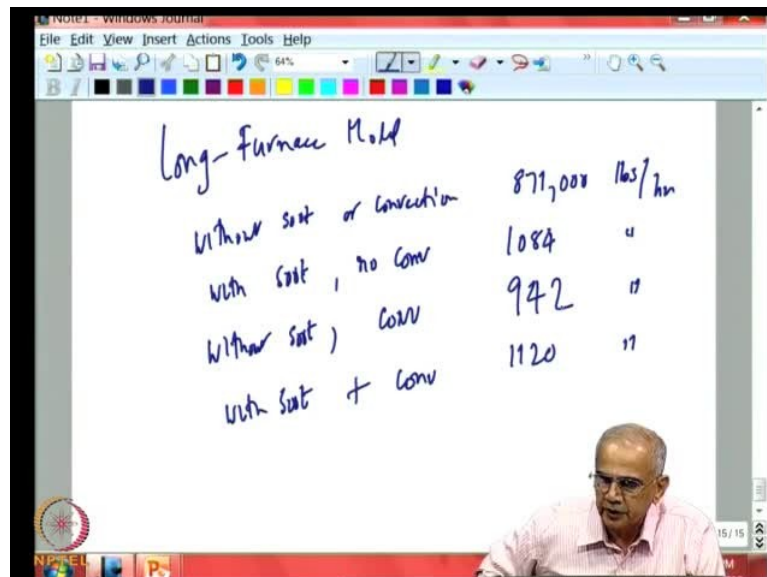 Note1 - Windows Journal
File Edit View Insert Actions Tools Help
64%
B I
Long-Furnace Model
without soot or convection 871,000 lbs/hr
with soot, no conv 1084 "
without soot, conv 942 "
with soot + conv 1120 "
15/15
NPTEL